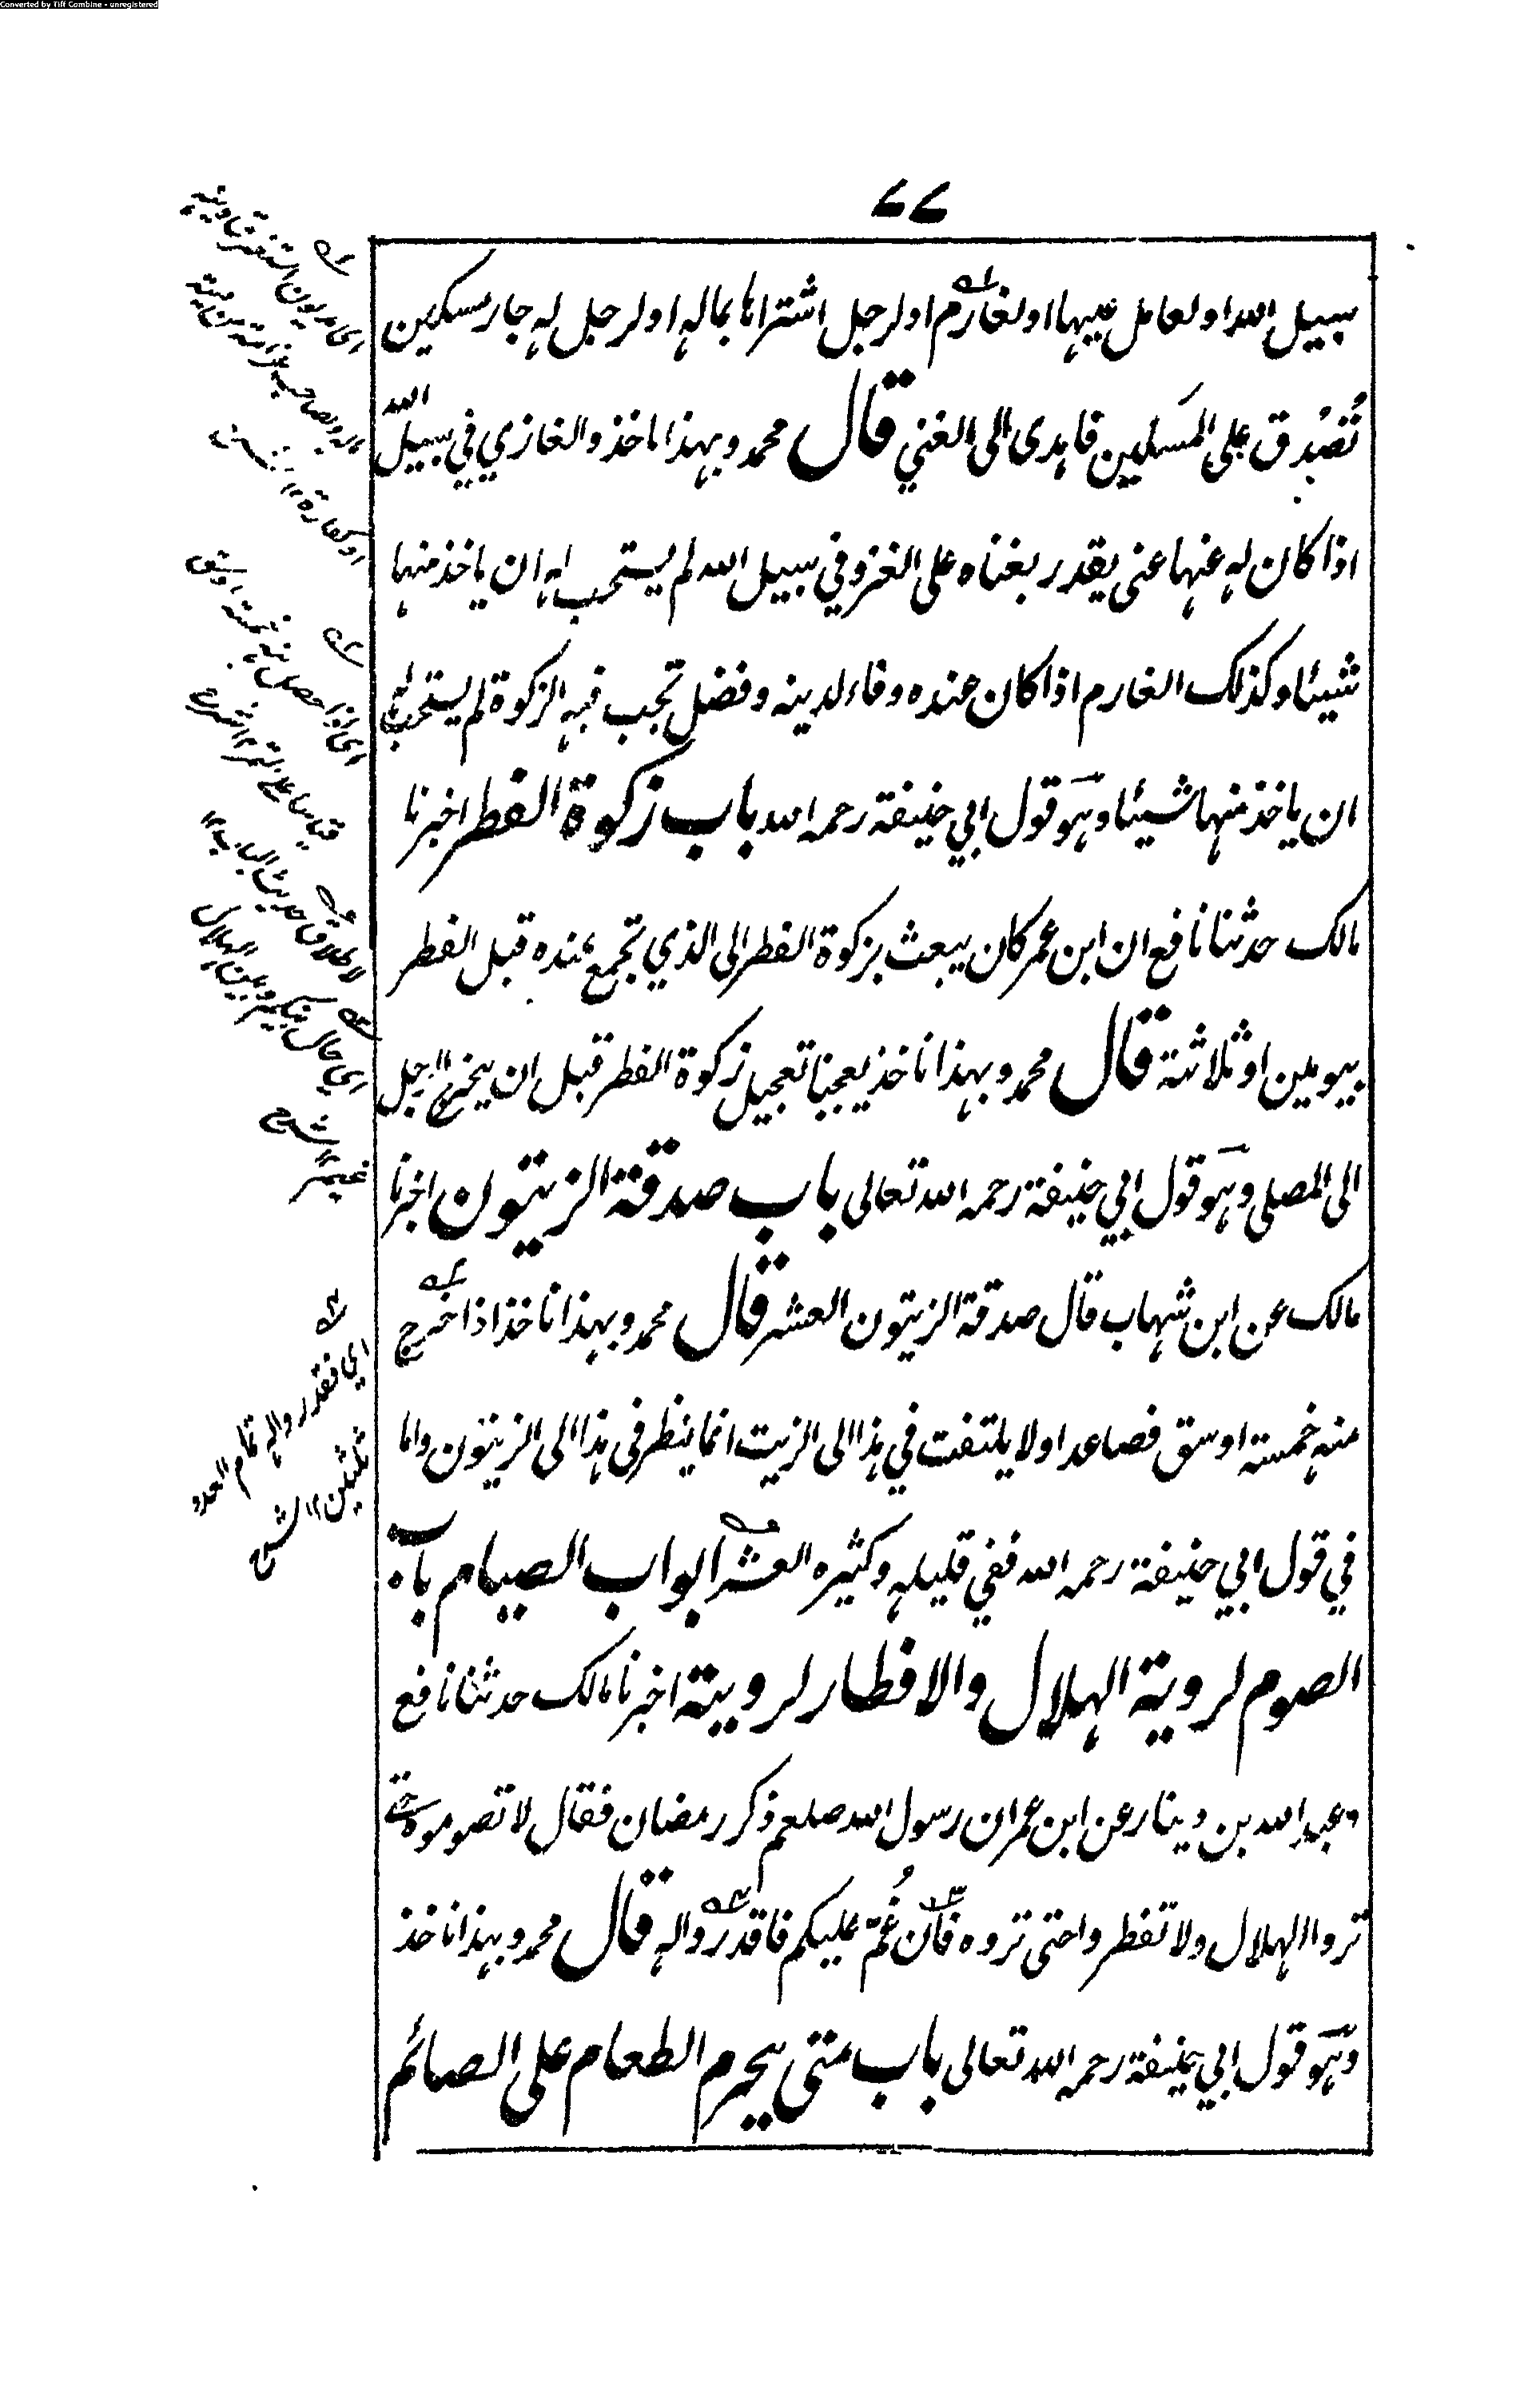 Converted by Tiff Combine - unregistered
۷۷
سبيل الله او لعامل عليها او لغارم او لرجل اشتراها بماله او لرجل له جار مسكين
تُصُدِّق على المسكين فاهدى الى الغني قال محمد وبهذا ناخذ والغازي في سبيل الله
اذا كان له عنها غنى يقدر بغناه على الغزو في سبيل الله لم يستحب له ان ياخذ منها
شيئا وكذلك الغارم اذا كان عنده وفاء لدينه وفضل تجب فيه الزكوة لم يستحب له
ان ياخذ منها شيئا وهو قول ابي حنيفة رحمه الله باب زكوة الفطر اخبرنا
مالك حدثنا نافع ان ابن عمر كان يبعث بزكوة الفطر الى الذي تجمع عنده قبل الفطر
بيومين او ثلاثة قال محمد وبهذا ناخذ يعجبنا تعجيل زكوة الفطر قبل ان يخرج الرجل
الى المصلى وهو قول ابي حنيفة رحمه الله تعالى باب صدقة الزيتون اخبرنا
مالك عن ابن شهاب قال صدقة الزيتون العشر قال محمد وبهذا ناخذ اذا خرج
منه خمسة اوسق فصاعدا ولا يلتفت في هذا الى الزيت انما ينظر في هذا الى الزيتون واما
في قول ابي حنيفة رحمه الله ففي قليله وكثيره العشر ابواب الصيام باب
الصوم لروية الهلال والافطار لرويته اخبرنا مالك حدثنا نافع
وعبد الله بن دينار عن ابن عمر ان رسول الله صلعم ذكر رمضان فقال لا تصوموا حتى
تروا الهلال ولا تفطروا حتى تروه فان غُمّ عليكم فاقدروا له قال محمد وبهذا ناخذ
وهو قول ابي حنيفة رحمه الله تعالى باب متى يحرم الطعام على الصائم
او كفارة
اي اذا حصل منه خمسة اوسق
لاطلاق حديث الباب
اي حال بينكم وبين الهلال
غيم
اي فقدروا له تمام العدد
ثلثين